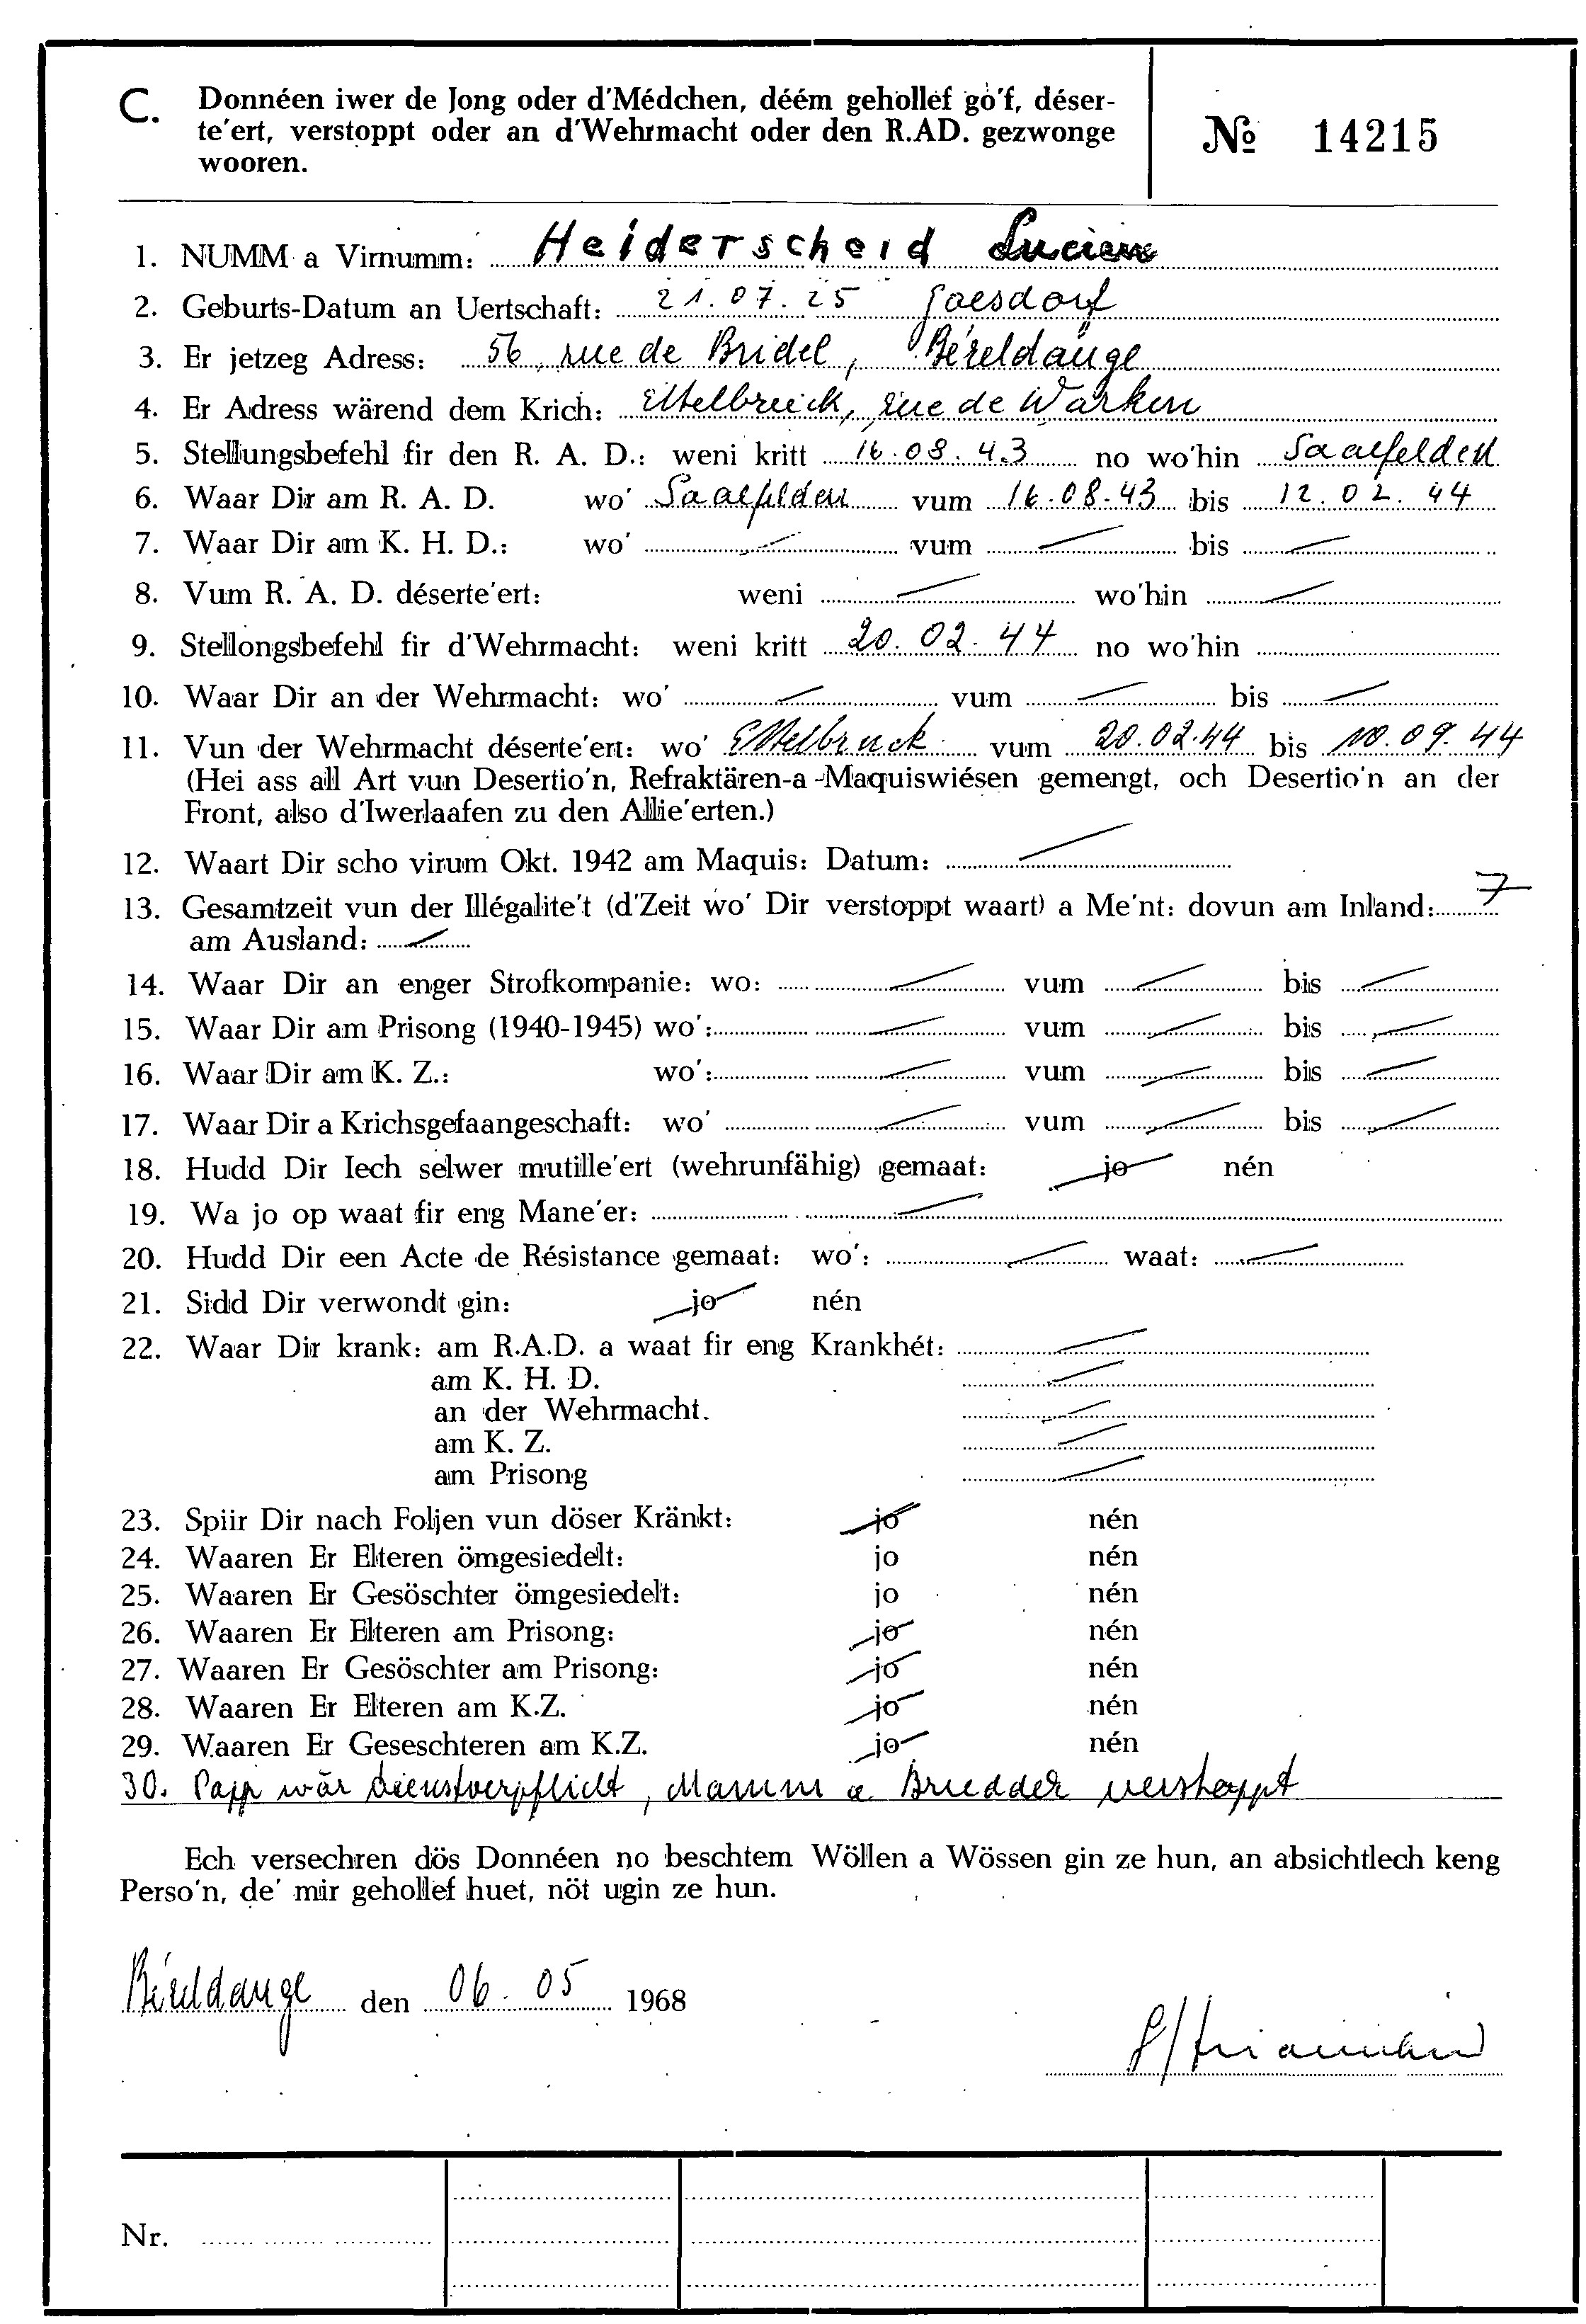 C. Donnéen iwer de Jong oder d'Médchen, déém gehollef go'f, déser-
te'ert, verstoppt oder an d'Wehrmacht oder den R.AD. gezwonge
wooren.
№ 14215
1. NUMM a Virnumm: Heiderscheid Lucien
2. Geburts-Datum an Uertschaft: 21.07.25 Goesdorf
3. Er jetzeg Adress: 56, rue de Bridel, Béreldange
4. Er Adress wärend dem Krich: Ettelbruck, rue de Warken
5. Stellungsbefehl fir den R. A. D.: weni kritt 16.08.43 no wo'hin Saalfelden
6. Waar Dir am R. A. D. wo' Saalfelden vum 16.08.43 bis 12.02.44
7. Waar Dir am K. H. D.: wo' vum bis
8. Vum R. A. D. déserte'ert: weni wo'hin
9. Stellongsbefehl fir d'Wehrmacht: weni kritt 20.02.44 no wo'hin
10. Waar Dir an der Wehrmacht: wo' vum bis
11. Vun der Wehrmacht déserte'ert: wo' Ettelbruck vum 20.02.44 bis 10.09.44
(Hei ass all Art vun Desertio'n, Refraktären-a-Maquiswiésen gemengt, och Desertio'n an der
Front, also d'Iwerlaafen zu den Allie'erten.)
12. Waart Dir scho virum Okt. 1942 am Maquis: Datum:
13. Gesamtzeit vun der Illégalite't (d'Zeit wo' Dir verstoppt waart) a Me'nt: dovun am Inland: 7
am Ausland:
14. Waar Dir an enger Strofkompanie: wo: vum bis
15. Waar Dir am Prisong (1940-1945) wo': vum bis
16. Waar Dir am K. Z.: wo': vum bis
17. Waar Dir a Krichsgefaangeschaft: wo' vum bis
18. Hudd Dir Iech selwer mutille'ert (wehrunfähig) gemaat: jo nén
19. Wa jo op waat fir eng Mane'er:
20. Hudd Dir een Acte de Résistance gemaat: wo': waat:
21. Sidd Dir verwondt gin: jo nén
22. Waar Dir krank: am R.A.D. a waat fir eng Krankhét:
am K. H. D.
an der Wehrmacht.
am K. Z.
am Prisong
23. Spiir Dir nach Foljen vun döser Kränkt: jo nén
24. Waaren Er Elteren ömgesiedelt: jo nén
25. Waaren Er Gesöschter ömgesiedelt: jo nén
26. Waaren Er Elteren am Prisong: jo nén
27. Waaren Er Gesöschter am Prisong: jo nén
28. Waaren Er Elteren am K.Z. jo nén
29. Waaren Er Geseschteren am K.Z. jo nén
30. Papp wär dienstverpflicht, Mamm a Brudder verstoppt
Ech versechren dös Donnéen no beschtem Wöllen a Wössen gin ze hun, an absichtlech keng
Perso'n, de' mir gehollef huet, nöt ugin ze hun.
Béreldange den 06.05 1968
Nr.